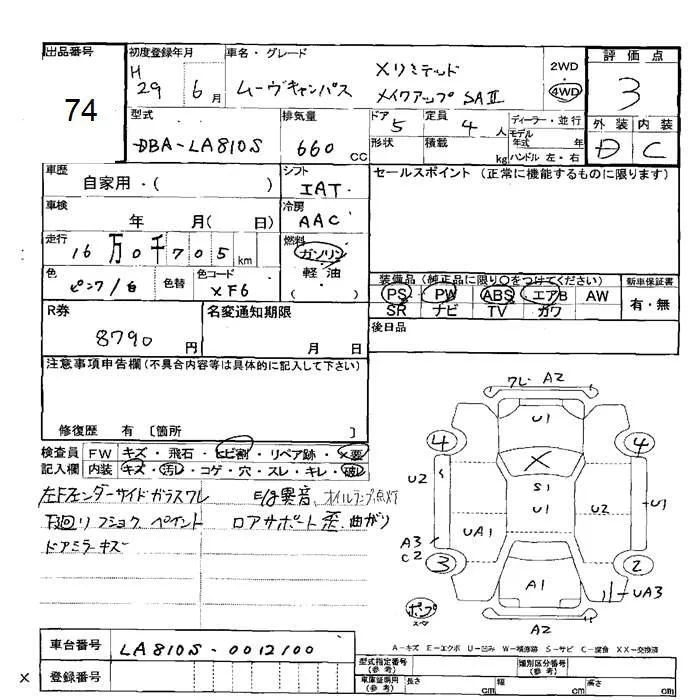 出品番号
74
初度登録年月
H 29年 6月
車名・グレード
ムーヴキャンバス
Xリミテッド
メイクアップ SAⅡ
2WD
4WD
評価点
3
外装 内装
D C
型式
DBA-LA810S
排気量
660 CC
ドア 5
定員 4 人
ディーラー・並行
モデル
年式 年
形状
積載 kg
ハンドル 左・右
車歴
自家用・( )
シフト
IAT
セールスポイント (正常に機能するものに限ります)
車検
年 月( 日)
冷房
AAC
走行
16万0千705km
燃料
ガソリン
軽油
( )
色
ピンク/白
色替
色コード
XF6
装備品(純正品に限り○をつけてください)
PS PW ABS エアB AW
SR ナビ TV カワ
新車保証書
有・無
R券
8790円
名変通知期限
月 日
後日品
注意事項申告欄(不具合内容等は具体的に記入して下さい)
修復歴 有 [箇所 ]
検査員 FW キズ・飛石・ヒビ割・リペア跡・X要
記入欄 内装 キズ・汚レ・コゲ・穴・スレ・キレ・破レ
左Fフェンダーサイドガラスワレ E/g異音、オイルランプ点灯
下廻り フショク ペイント ロアサポート 歪、曲がり
ドアミラーキズ
ワレ A2
U1
4 4
X
S1
U2 U1 U2 U1
UA1
A3
C2
3 2
A1
UA3
ポプ
スペア
A2
A-キズ E-エクボ U-凹み W-補修跡 S-サビ C-腐食 XX-交換済
車台番号
LA810S-0012100
X 登録番号
型式指定番号
(参考)
類別区分番号
(参考)
車庫証明用
(参考)
長さ cm 幅 cm 高さ cm